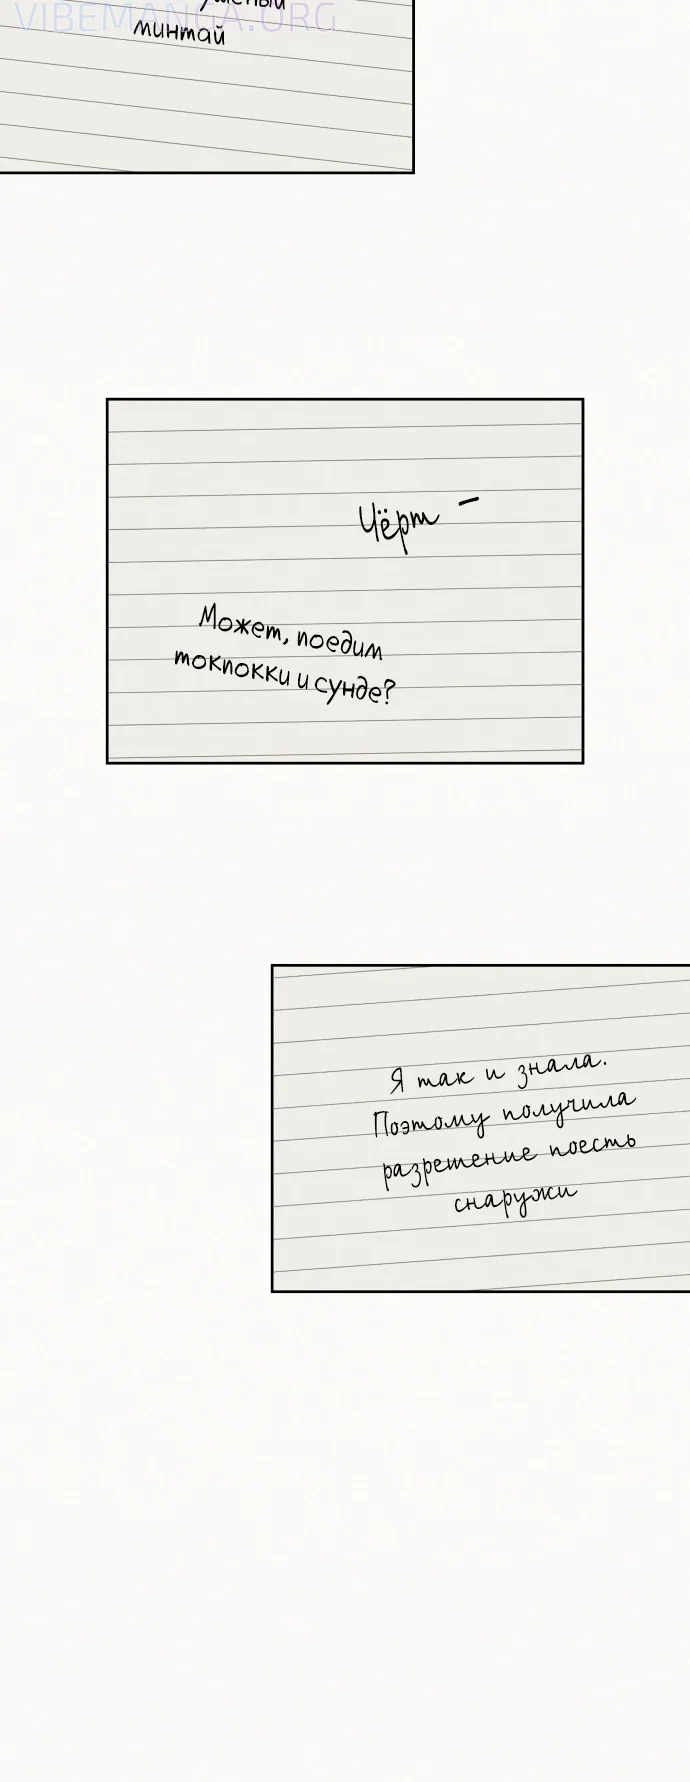 VIBEMANGA.ORG
минтай
Чёрт –
Может, поедим
токпокки и сунде?
Я так и знала.
Поэтому получила
разрешение поесть
снаружи